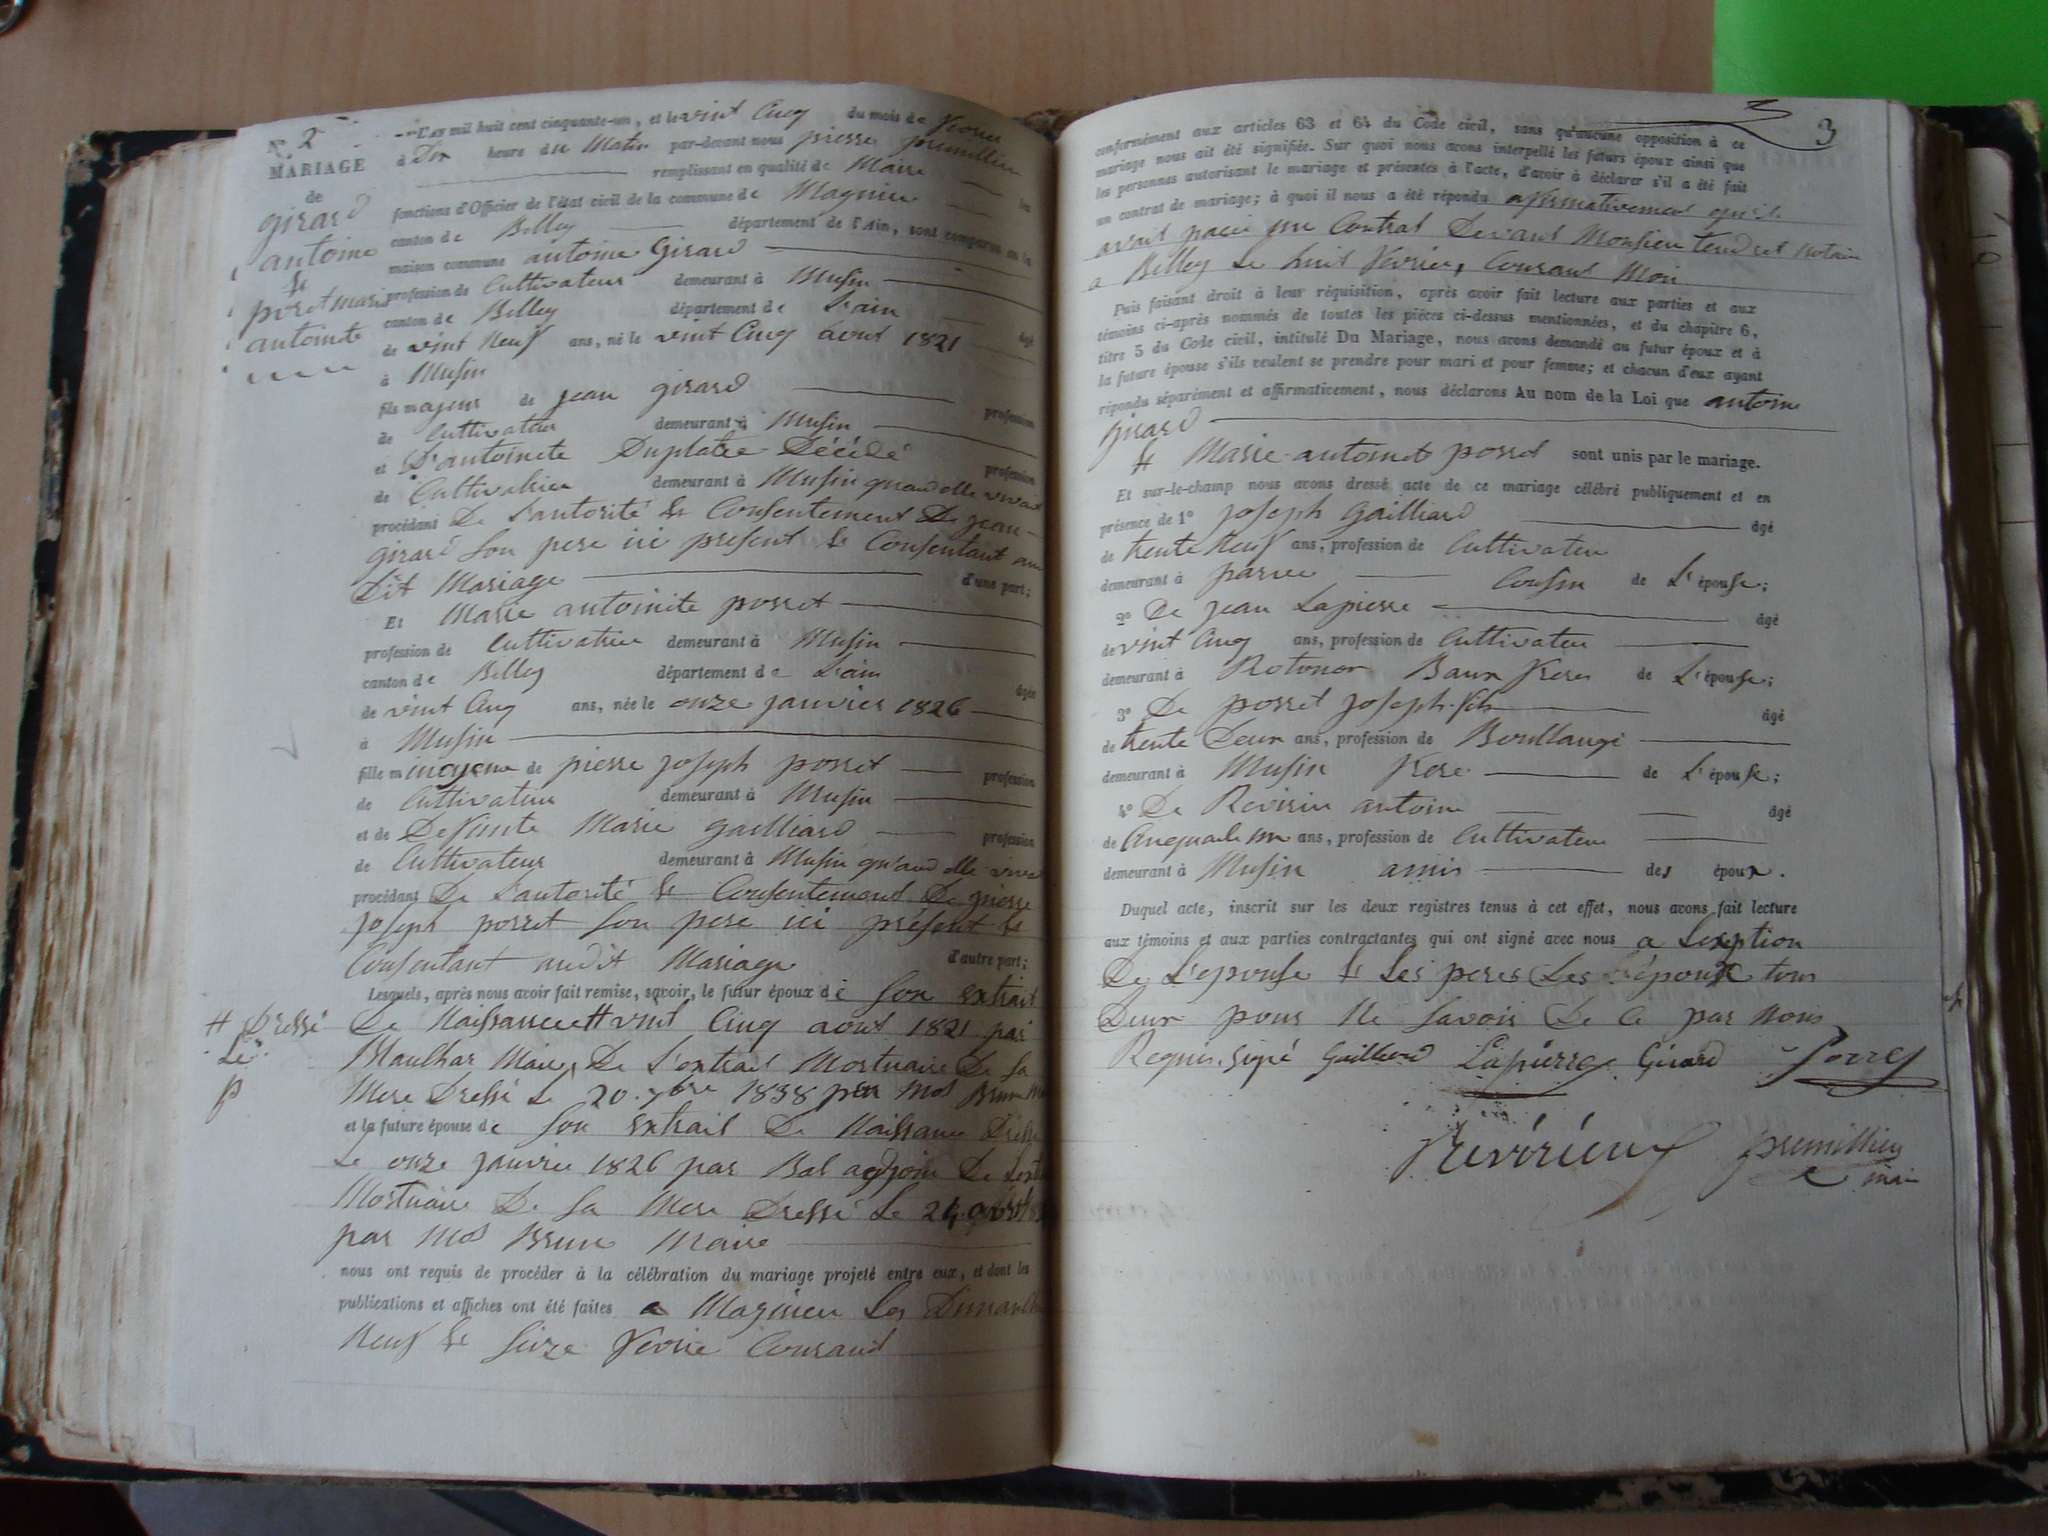 N. 2
MARIAGE
de
girard
antoine
&
porret marie
antoinete
L'AN mil huit cent cinquante-un, et le vint Cinq du mois de fevrier
à Dix heure du Matin par-devant nous pierre premillieu
remplissant en qualité de Maire les
fonctions d'Officier de l'état civil de la commune de Magnieu
canton de Belley département de l'Ain, sont comparus en la
maison commune antoine Girard
profession de Cultivateur demeurant à Musin
canton de Belley département de L'ain âgé
de vint Neuf ans, né le vint Cinq aout 1821
à Musin
fils majeur de jean girard profession
de Cultivateur demeurant à Musin
et D'antoinete Duplatre Décédé profession
de Cultivatrice demeurant à Musin quand elle vivait
procédant De L'autorité & Consentement De jean
girard Son pere ici present & Consentant au
Dit Mariage d'une part;
Et Marie antoinite porret
profession de Cultivatrice demeurant à Musin
canton de Belley département de L'ain âgée
de vint Cinq ans, née le onze janvier 1826
à Musin
fille de pierre joseph porret profession
de Cultivateur demeurant à Musin
et de Defunte Marie gailliard profession
de Cultivateur demeurant à Musin quand elle
procédant De L'autorité & Consentement De pierre
joseph porret Son pere ici présent &
Consentant audit Mariage d'autre part;
Lesquels, après nous avoir fait remise, savoir, le futur époux de Son extrait
# Dressé
Le
De Naissance # vint Cinq aout 1821 par
Maire, De L'extrait Mortuaire De Sa
Mere Dressé Le 20. 7bre 1838 par Brun
et la future épouse de Son extrait De Naissance Dressé
Le onze janvier 1826 par Bal adjoin De
Mortuaire De Sa Mere Dressé Le
par Brun Maire
nous ont requis de procéder à la célébration du mariage projeté entre eux, et dont les
publications et affiches ont été faites a Magnieu Les Dimanche
Neuf & Seize fevrie Courant
3
conformément aux articles 63 et 64 du Code civil, sans qu'aucune opposition à ce
mariage nous ait été signifiée. Sur quoi nous avons interpellé les futurs époux ainsi que
les personnes autorisant le mariage et présentes à l'acte, d'avoir à déclarer s'il a été fait
un contrat de mariage; à quoi il nous a été répondu afirmativement
avait un Contrat Devant Monsieu tendret Notaire
a Belley Le huit fevrier, Courant Moi
Puis faisant droit à leur réquisition, après avoir fait lecture aux parties et aux
témoins ci-après nommés de toutes les pièces ci-dessus mentionnées, et du chapitre 6,
titre 5 du Code civil, intitulé Du Mariage, nous avons demandé au futur époux et à
la future épouse s'ils veulent se prendre pour mari et pour femme; et chacun d'eux ayant
répondu séparément et affirmativement, nous déclarons Au nom de la Loi que antoine
girard
& Marie antoinete porret sont unis par le mariage.
Et sur-le-champ nous avons dressé acte de ce mariage célébré publiquement et en
présence de 1° joseph gailliard âgé
de trente Neuf ans, profession de Cultivateur
demeurant à Cousin de L'épouse;
2° De jean Lapierre âgé
de vint Cinq ans, profession de Cultivateu
demeurant à Beaux frere de L'épouse;
3° De porret joseph fils âgé
de trente Deux ans, profession de Boullangé
demeurant à Musin frere de L'épouse;
4° De antoine âgé
de Cinquante un ans, profession de Cultivateu
demeurant à Musin amis des époux.
Duquel acte, inscrit sur les deux registres tenus à cet effet, nous avons fait lecture
aux témoins et aux parties contractantes qui ont signé avec nous a Lexeption
De L'epouse & Les peres Des époux tous
Deux pour Ne Savoir De Ce par Nous
Requis. Signé Gailliard Lapierre Girard Porret
premillieu